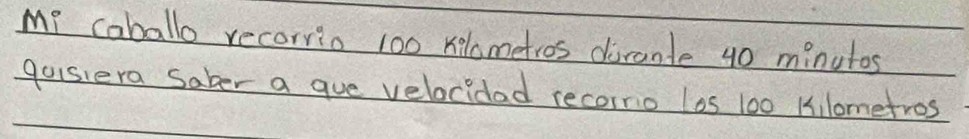 Mi caballo recorrio 100 Kilometros durante 40 minutos
quisiera saber a que velocidad recorrio los 100 Kilometros